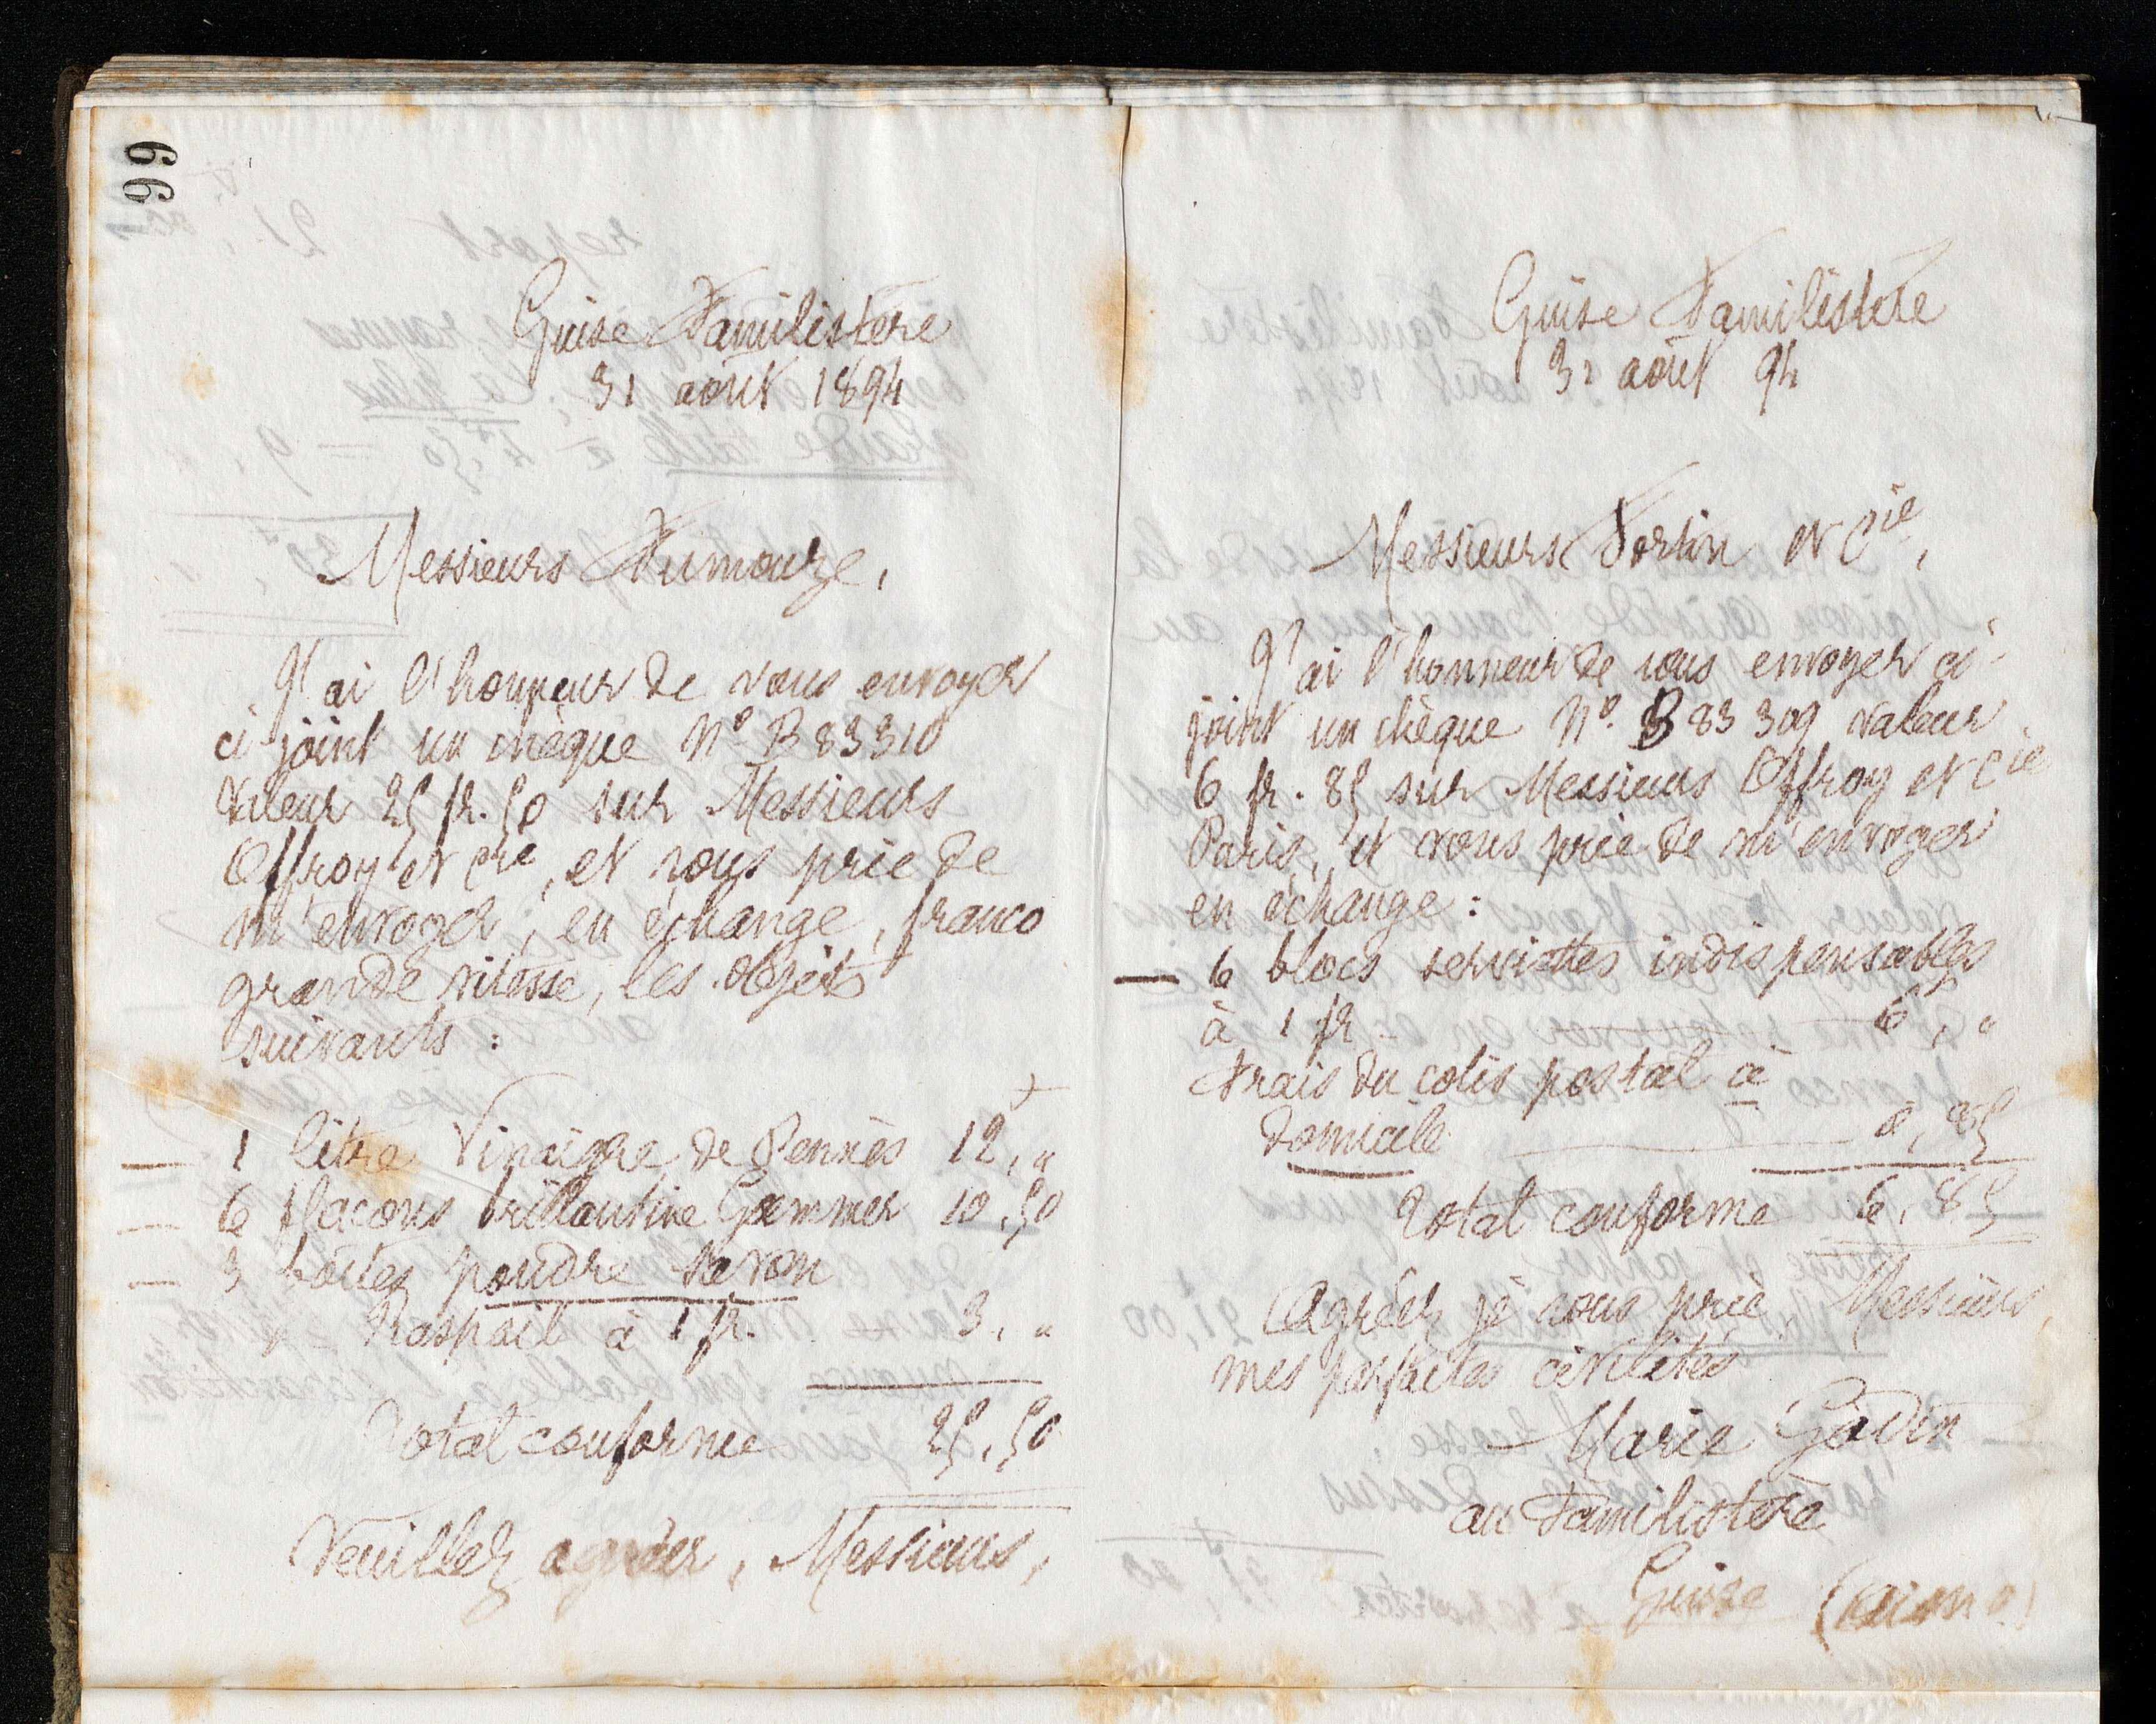 99
Guise Familistère
31 août 1894
Messieurs Fumouze,
J'ai l'honneur de vous envoyer
ci-joint un chèque Nº B 83310
valeur 25 fr. 50 sur Messieurs
Offroy et Cie, et vous prie de
m'envoyer, en échange, franco
grande vitesse, les objets
suivants :
1 litre Vinaigre de Pennès 12, "
6 flacons brillantine Grammer 10,50
3 boîtes poudre savon
" - Raspail à 1 fr. — 3, "
Total conforme 25,50
Veuillez agréer, Messieurs,
Guise Familistère
31 août 94
Messieurs Fortin et Cie,
J'ai l'honneur de vous envoyer ci-
joint un chèque Nº. B 83 309 valeur
6 fr. 85 sur Messieurs Offroy et Cie
Paris, et vous prie de m'envoyer
en échange :
— 6 blocs serviettes indispensables
à 1 fr — 6, "
Frais du colis postal à
domicile — 0,85
Total conforme 6,85
Agréez je vous prie, Messieurs,
mes parfaites civilités
Marie Godin
au Familistère
Guise (Aisne)